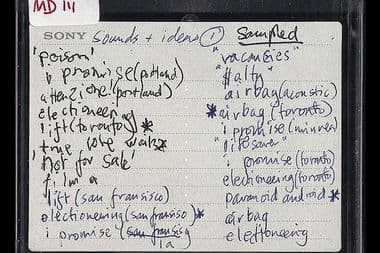 MD 111
SONY Sounds + ideas ① Sampled
'poison'
i promise (portland)
attenzione (portland)
electioneering
lift (toronto) *
true love waits *
'not for sale'
f. i'm a
lift (san fransisco)
electioneering (san fransiso) *
i promise (san fransis
la
"vacancies"
airbag (acoustic)
* airbag (toronto)
i promise (minnea
"lifesaver"
i promise (toronto)
electioneering (toronto)
paranoid android *
airbag
eledtoneering